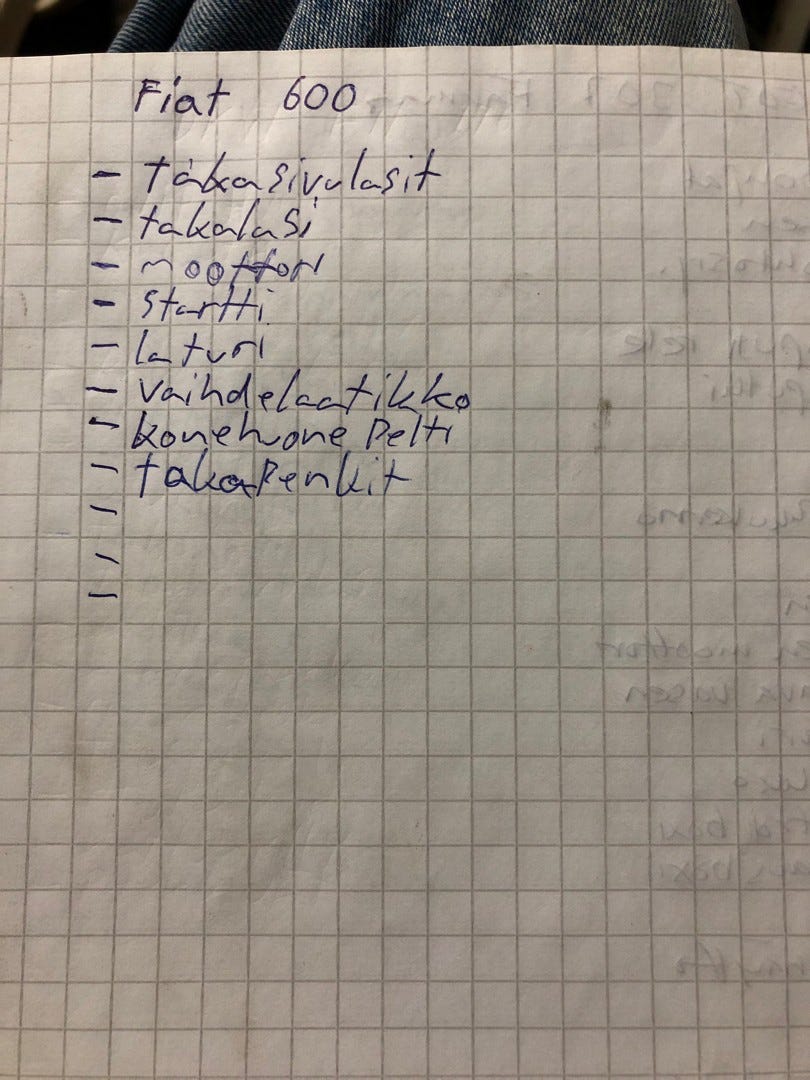 Fiat 600
- takasivulasit
- takalasi
- moottori
- startti
- laturi
- vaihdelaatikko
- konehuone pelti
- takapenkit
-
-
-